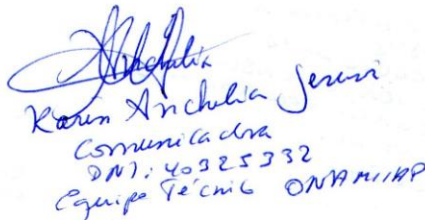 Anchelia
Karin Anchelia Jesusi
Comunicadora
DNI: 40325332
Equipo Técnico ONAMIAP